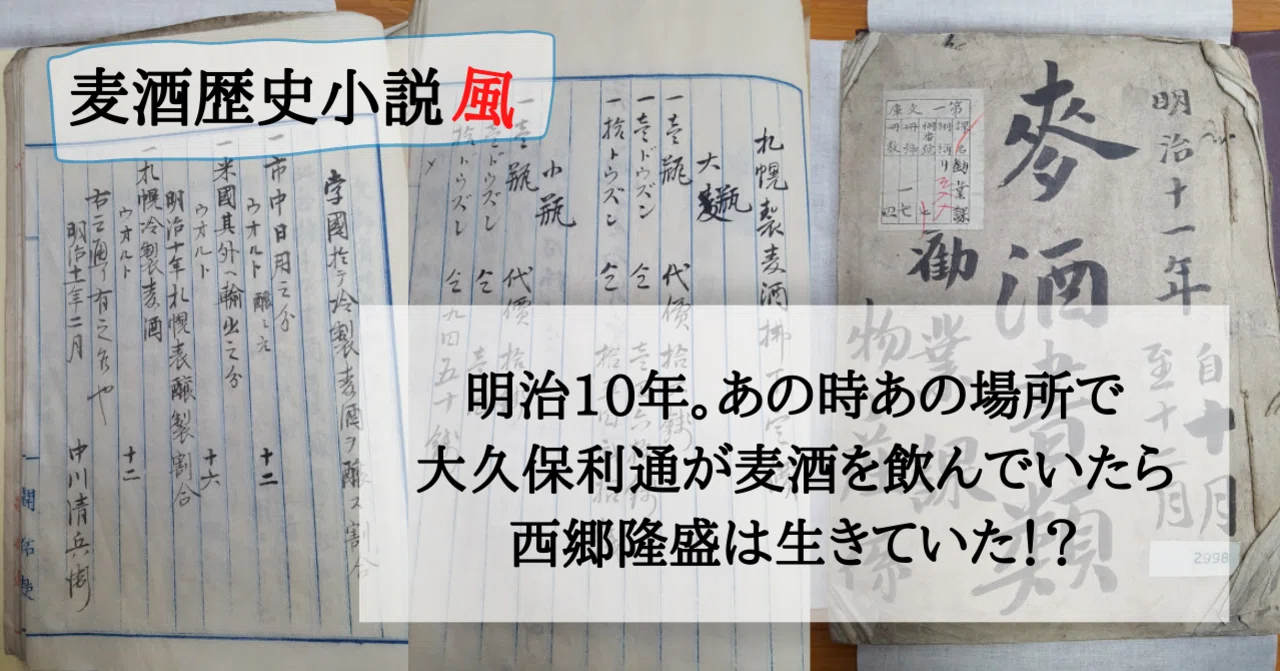 麦酒歴史小説風
明治10年。あの時あの場所で
大久保利通が麦酒を飲んでいたら
西郷隆盛は生きていた!?
明治十一年
自十月
至十二月
麥酒書類
勸業課
物産係
2998
札幌製麦酒拂下定
大瓶
一壱瓶 代價 拾
一壱ドウズン 仝 壱
一拾トウズン 仝 拾
小瓶
一壱瓶 代價 拾
壱ドウズン 仝 壱
拾トウズン 仝 九四五十錢
孛國於テ冷製麦酒ヲ醸ス割合
一市中日用之分
ウオルト 十二
一米國其外ヘ輸出之分
ウオルト 十六
明治十年札幌表醸製割合
一札幌冷製麦酒
ウオルト 十二
右之通有之候也
明治十一年二月
中川清兵衛
開拓使